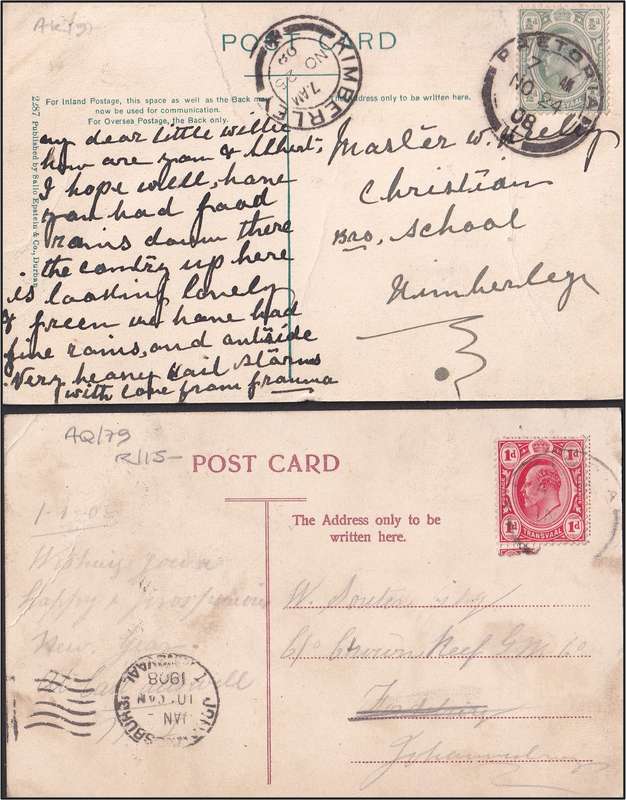 AK/79
POST CARD
KIMBERLEY
7 AM
NO 2
08
½d ½d
TRANSVAAL
PRETORIA
7 AM
NO 24
08
For Inland Postage, this space as well as the Back may
now be used for communication.
For Oversea Postage, the Back only.
The Address only to be written here.
2687 Published by Sallo Epstein & Co., Durban
my dear little Willie
how are you & Albert
I hope well, have
you had good
rains down there
the country up here
is looking lovely
& green we have had
fine rains, and outside
Very heavy hail storms
with love from granma
Master W.
Christian
Bro, School
Kimberley
AQ/79
R/15-
POST CARD
1d 1d
1d 1d
TRANSVAAL
The Address only to be
written here.
Wishing you a
happy & prosperous
New Year
W.
C/o Crown Reef G M Co
Johannesburg
JOHANNESBURG
TRANSVAAL
JAN
10
1908